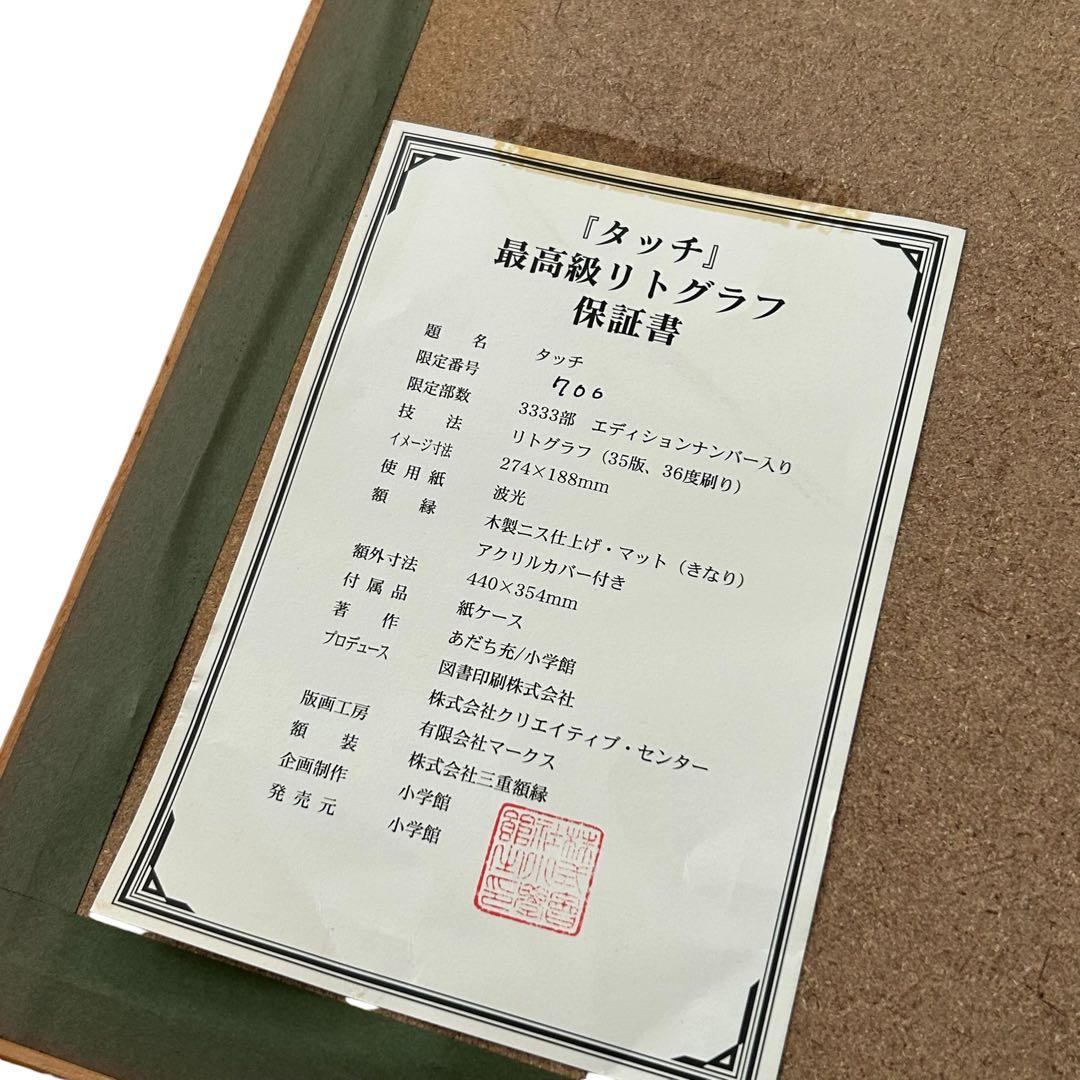 『タッチ』
最高級リトグラフ
保証書
題名 タッチ
限定番号 706
限定部数 3333部 エディションナンバー入り
技法 リトグラフ（35版、36度刷り）
イメージ寸法 274×188mm
使用紙 波光
額縁 木製ニス仕上げ・マット（きなり）
アクリルカバー付き
額外寸法 440×354mm
付属品 紙ケース
著作 あだち充/小学館
プロデュース 図書印刷株式会社
株式会社クリエイティブ・センター
版画工房 有限会社マークス
額装 株式会社三重額縁
企画制作 小学館
発売元 小学館
株式會社小學館之印